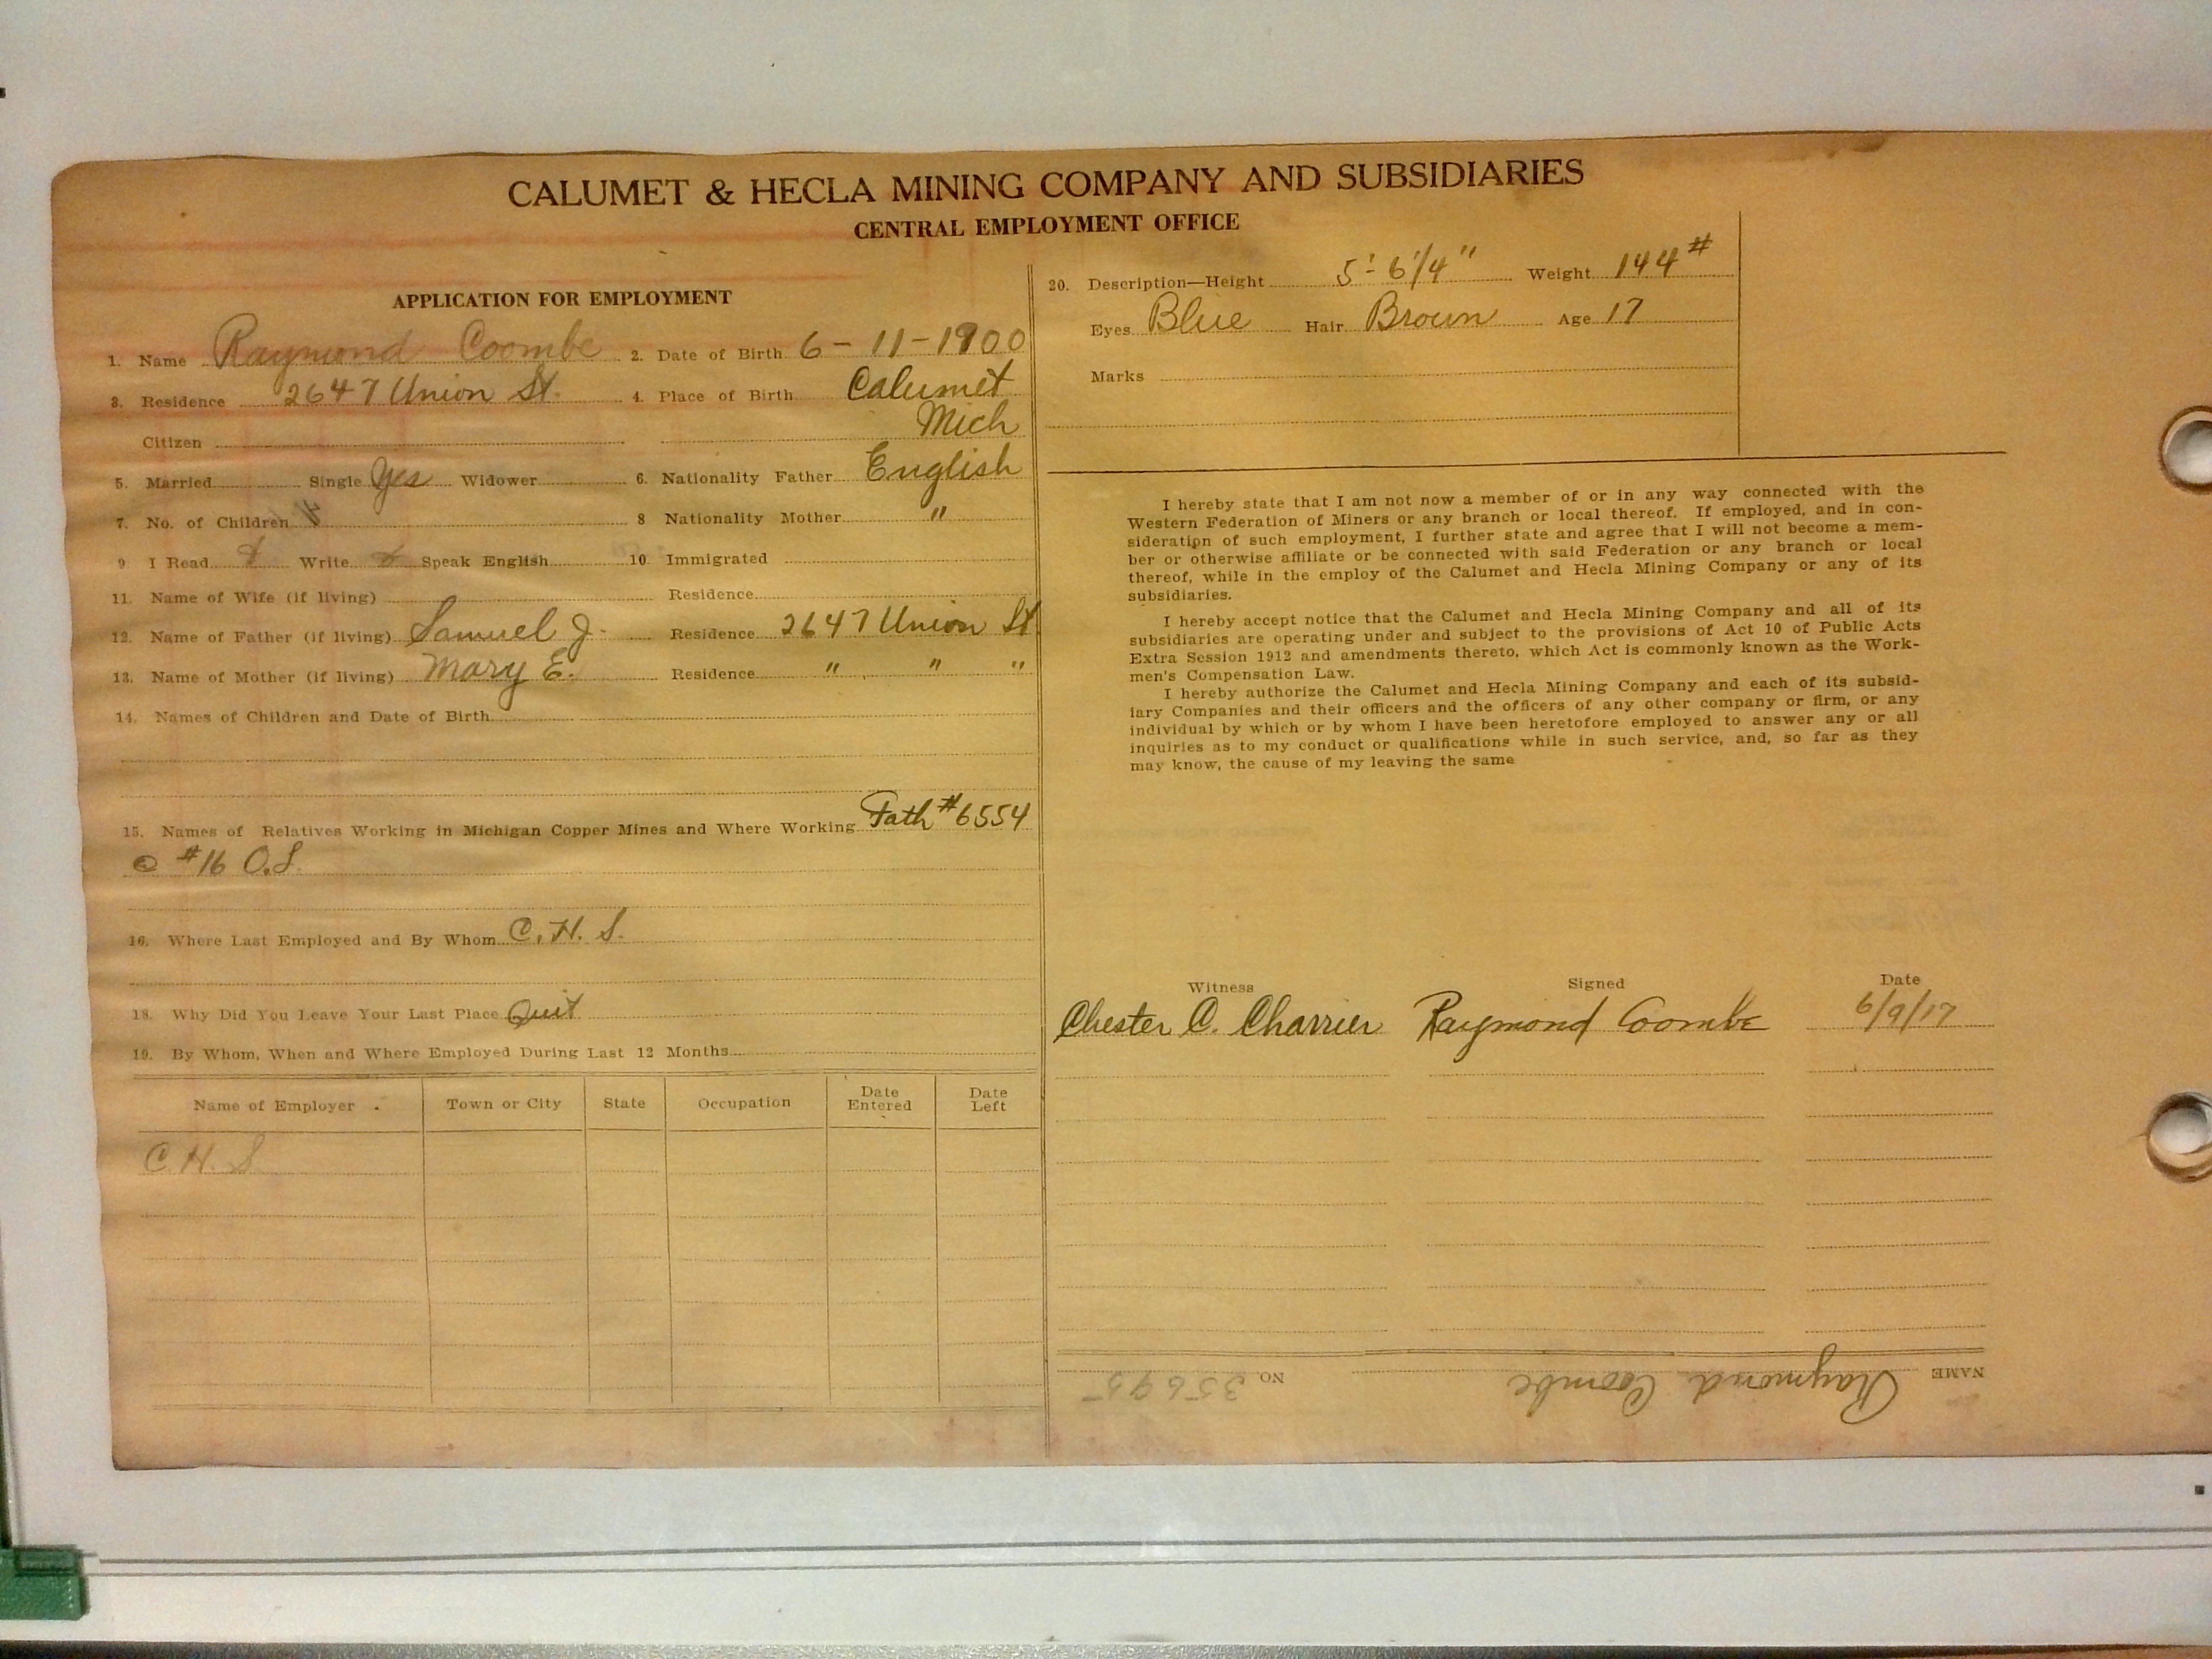 CALUMET & HECLA MINING COMPANY AND SUBSIDIARIES
CENTRAL EMPLOYMENT OFFICE
APPLICATION FOR EMPLOYMENT
1. Name Raymond Coombe 2. Date of Birth 6-11-1900
3. Residence 2647 Union St. 4. Place of Birth Calumet
Citizen Mich
5. Married Single Yes Widower 6. Nationality Father English
7. No. of Children 8 Nationality Mother "
9 I Read Write Speak English 10. Immigrated
11. Name of Wife (if living) Residence
12. Name of Father (if living) Samuel J. Residence 2647 Union St
13. Name of Mother (if living) Mary E. Residence " " "
14. Names of Children and Date of Birth
15. Names of Relatives Working in Michigan Copper Mines and Where Working Fath #6554
@ #16 O.S.
16. Where Last Employed and By Whom C. H. S.
18. Why Did You Leave Your Last Place Quit
19. By Whom, When and Where Employed During Last 12 Months
Name of Employer Town or City State Occupation Date Entered Date Left
C. H. S
20. Description—Height 5'-6 1/4" Weight 144#
Eyes Blue Hair Brown Age 17
Marks
I hereby state that I am not now a member of or in any way connected with the
Western Federation of Miners or any branch or local thereof. If employed, and in con-
sideration of such employment, I further state and agree that I will not become a mem-
ber or otherwise affiliate or be connected with said Federation or any branch or local
thereof, while in the employ of the Calumet and Hecla Mining Company or any of its
subsidiaries.
I hereby accept notice that the Calumet and Hecla Mining Company and all of its
subsidiaries are operating under and subject to the provisions of Act 10 of Public Acts
Extra Session 1912 and amendments thereto, which Act is commonly known as the Work-
men's Compensation Law.
I hereby authorize the Calumet and Hecla Mining Company and each of its subsid-
iary Companies and their officers and the officers of any other company or firm, or any
individual by which or by whom I have been heretofore employed to answer any or all
inquiries as to my conduct or qualifications while in such service, and, so far as they
may know, the cause of my leaving the same
Witness Signed Date
Chester C. Charrier Raymond Coombe 6/9/17
NAME Raymond Coombe NO. 35695